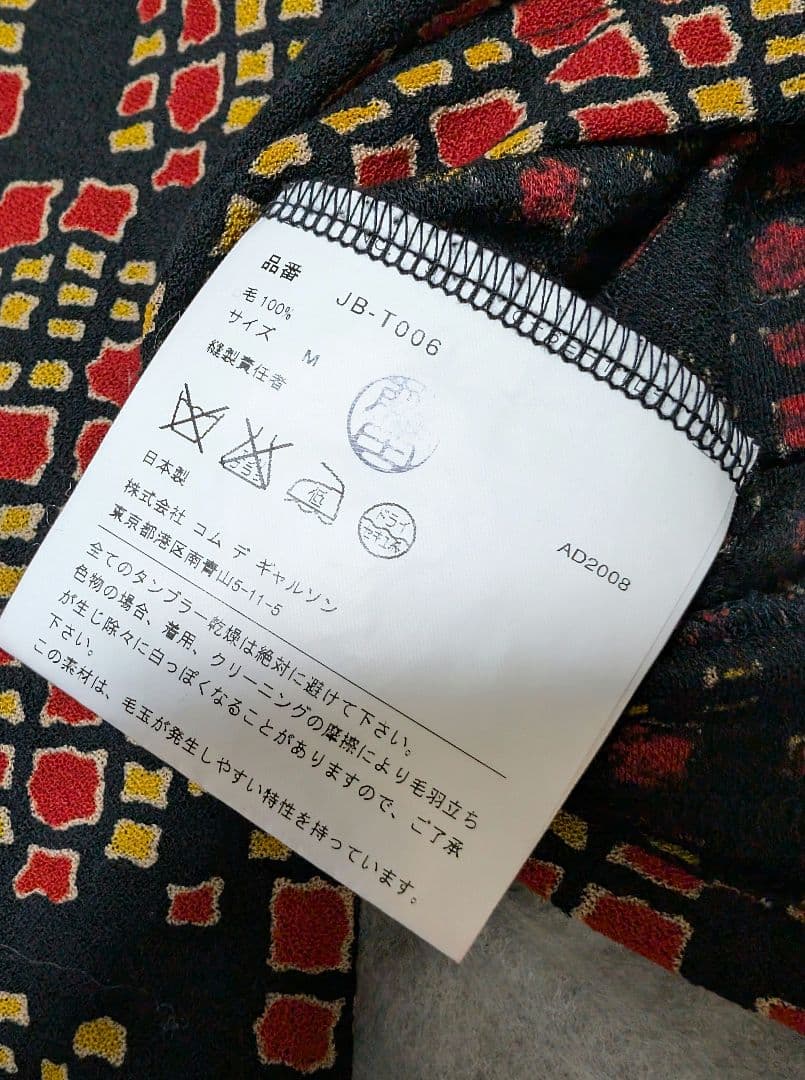 品番 JB-T006
毛 100%
サイズ M
縫製責任者
エンソ
低
ドライ
セキユ系
日本製
株式会社 コム デ ギャルソン
東京都港区南青山5-11-5
AD2008
全てのタンブラー乾燥は絶対に避けて下さい。
色物の場合、着用、クリーニングの摩擦により毛羽立ち
が生じ除々に白っぽくなることがありますので、ご了承
下さい。
この素材は、毛玉が発生しやすい特性を持っています。